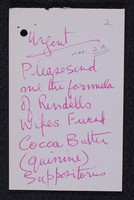 2
Urgent
Please send
me the formula
of Rendells
Wifes Friend
Cocoa Butter
(quinine)
Suppositories